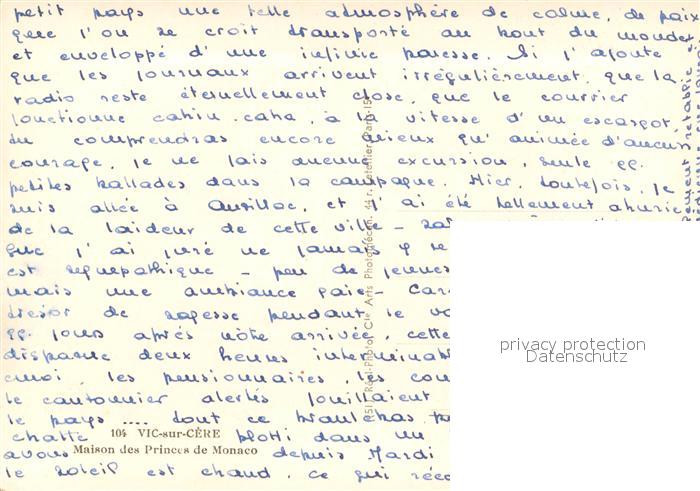 petit pays une telle atmosphère de calme, de paix
que l'on se croit transporté au bout du monde
et enveloppé d'une infinie paresse. Si j'ajoute
que les journaux arrivent irrégulièrement, que la
radio reste éternellement close, que le courrier
fonctionne cahin, caha, à la vitesse d'un escargot,
tu comprendras encore mieux qu'animée d'aucun
courage, je ne fais aucune excursion, seule qq.
petites ballades dans la campagne. Hier, toutefois, je
suis allée à Aurillac, et j'ai été tellement ahurie
de la laideur de cette ville -
que j'ai juré ne jamais y re
est sympathique - peu de jeunes
mais une ambiance gaie -
trésor de sagesse pendant le vo
qq. jours après notre arrivée, cette
disparue deux heures interminabl
émoi, les pensionnaires, les
le cantonnier alertés fouillaient
le pays .... dont ce
chatte blotti dans un
104 VIC-sur-CÈRE
avons depuis Mardi
Maison des Princes de Monaco
le soleil est chaud, ce qui
privacy protection
Datenschutz